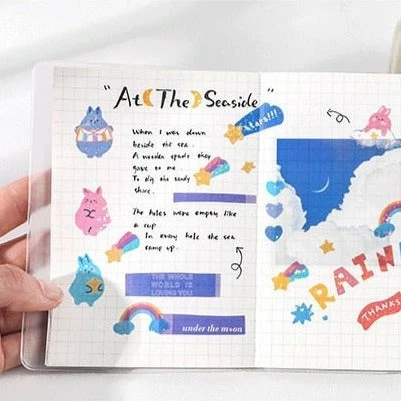 "At The Seaside"
When I was down
beside the sea
A wooden spade they
gave to me
To dig the sandy
shore.
The holes were empty like
a cup
In every hole the sea
camp up.
THE WHOLE
WORLD IS
LOVING YOU
under the moon
stars!!!
RAIN
THANKS